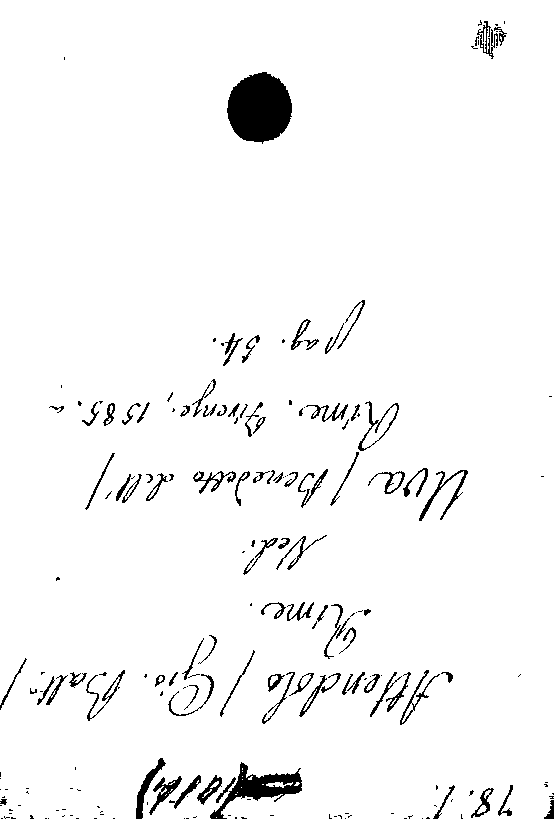 78.1.
Attendolo (Gio. Batt.ª)
Rime.
Vedi
Uva (Benedetto dell')
Rime. Firenze, 1585. a
pag. 54.